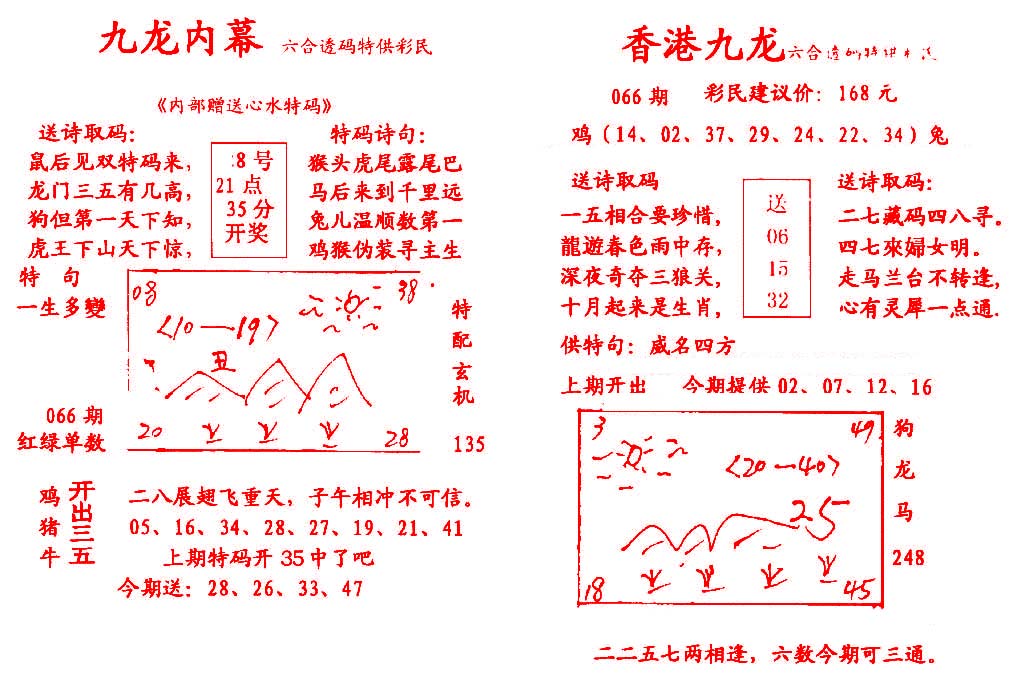 九龙内幕 六合透码特供彩民
《内部赠送心水特码》
送诗取码：
鼠后见双特码来，
龙门三五有几高，
狗但第一天下知，
虎王下山天下惊，
8号
21点
35分
开奖
特码诗句：
猴头虎尾露尾巴
马后来到千里远
兔儿温顺数第一
鸡猴伪装寻主生
特 句
一生多變
08
38
〈10—19〉
丑
20
28
特配玄机
135
066期
红绿单数
鸡猪牛
开出三五
二八展翅飞重天，子午相冲不可信。
05、16、34、28、27、19、21、41
上期特码开35中了吧
今期送：28、26、33、47
香港九龙 六合透码特
066期 彩民建议价：168元
鸡（14、02、37、29、24、22、34）兔
送诗取码
一五相合要珍惜，
龍遊春色雨中存，
深夜奇夺三狼关，
十月起来是生肖，
送
06
15
32
送诗取码：
二七藏码四八寻。
四七來婦女明。
走马兰台不转逢，
心有灵犀一点通.
供特句：威名四方
上期开出 今期提供02、07、12、16
3
49
〈20—40〉
25
18
45
狗龙马
248
二二五七两相逢，六数今期可三通。